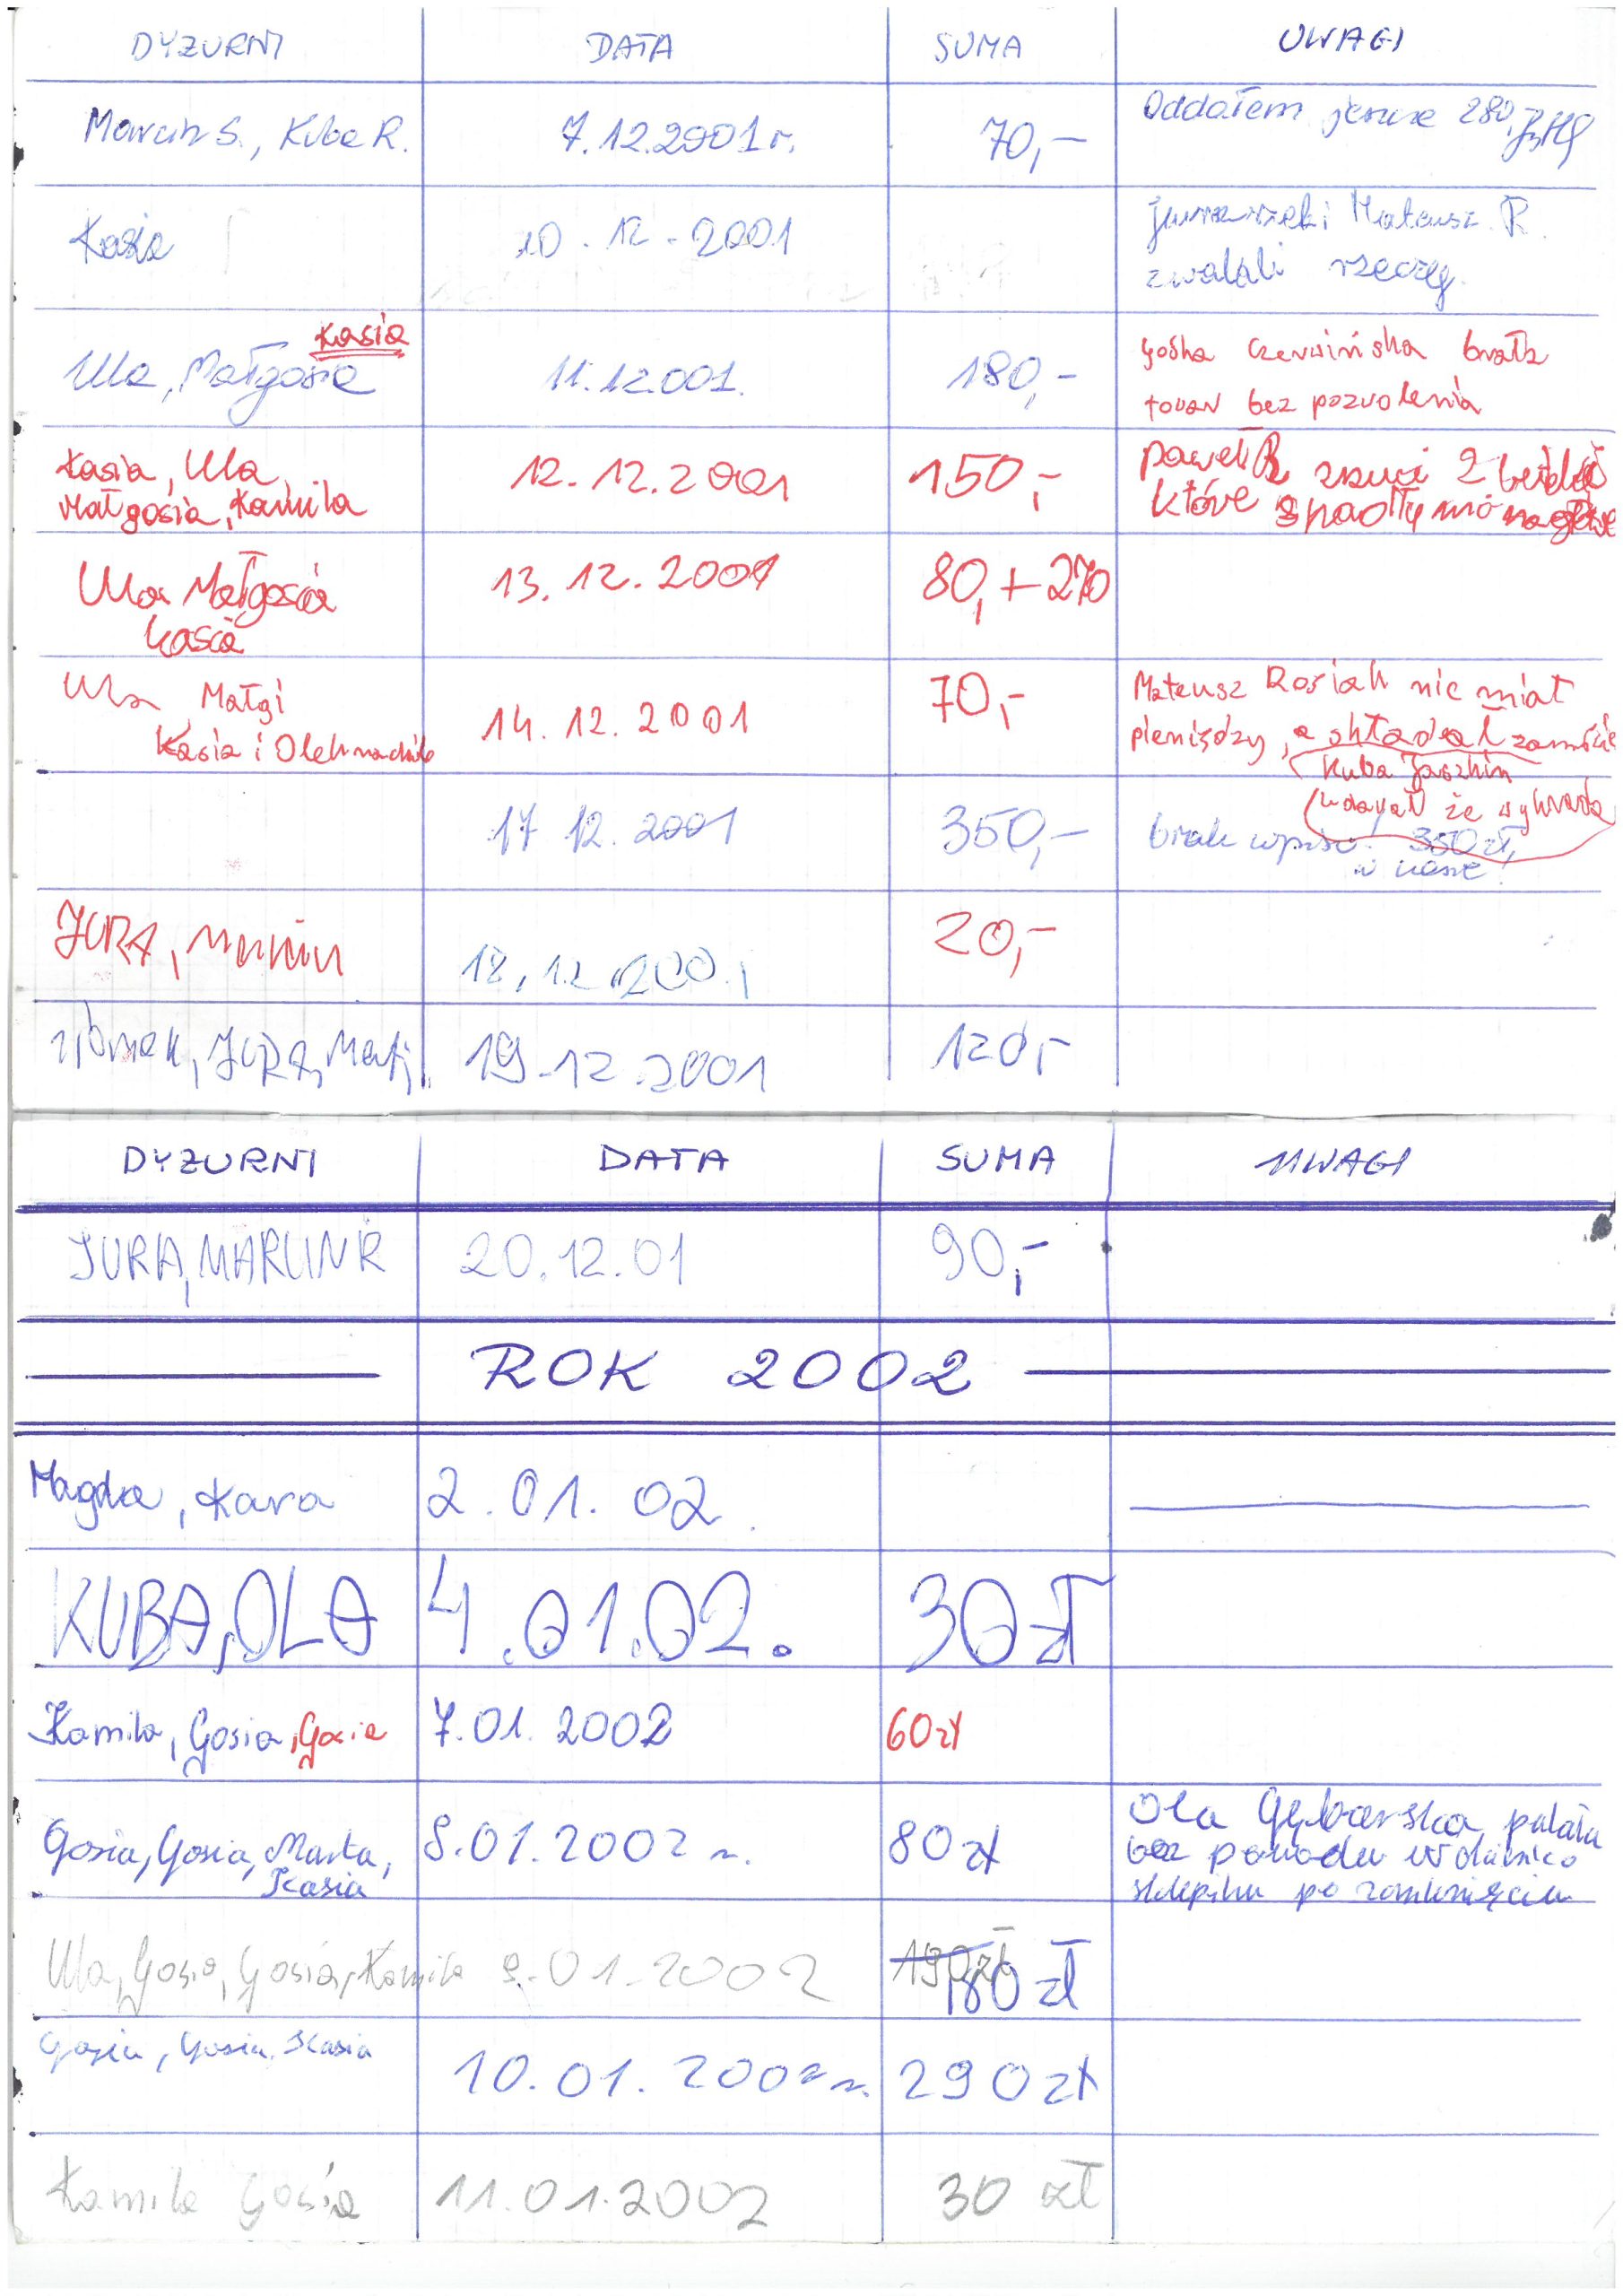 DYZURNI DATA SUMA UWAGI
Marcin S., Kuba R. 7.12.2001 r. 70,- Oddałem jeszcze 280,-
Kasia 10.12.2001 Mateusz R.
zwalali rzeczy
Kasia
Ula, Małgosia 11.12.001. 180,- Gośka Czerwińska brała
towar bez pozwolenia
Kasia, Ula, 12.12.2001 150,- Paweł R. 2
Małgosia, Kamila które spadły mi na głowę
Ula Małgosia 13.12.2001 80,+270
Kasia
Ula Małgi 14.12.2001 70,- Mateusz Rosiak nie miał
Kasia i Olek pieniędzy, a składał
Kuba
udawał że
17 12. 2001 350,- brak wpisu! 350 zł,
w kasie!
JURA, 18.12.2001 20,-
JURA, 19-12.2001 120,-
DYZURNI DATA SUMA UWAGI
JURA, MARCIN R 20.12.01 90,-
ROK 2002
Magda, Kara 2.01.02.
KUBA, OLA 4.01.02. 30 zł
Kamila, Gosia, Gosia 7.01.2002 60 zł
Gosia, Gosia, Marta, 8.01.2002 r. 80 zł Ola
Kasia bez powodu
sklepiku po zamknięciu
Ula, Gosia, Gosia, Kamila 9.01.2002 190zł 180 zł
Gosia, Gosia, Kasia 10.01.2002 r. 290 zł
Kamila Gosia 11.01.2002 30 zł